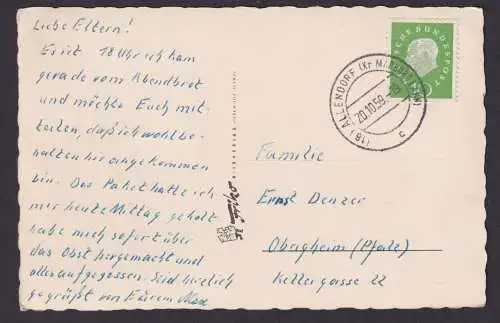 Liebe Eltern!
Es ist 18 Uhr ich kam
gerade vom Abendbrot
und möchte Euch mit-
teilen, daß ich wohlbe-
halten hier angekommen
bin. Das Paket hatte ich
mir heute Mittag geholt
habe mich sofort über
das Obst hergemacht und
alles aufgegessen. Seid herzlich
gegrüßt von Eurem
DEUTSCHE BUNDESPOST
(16) ALLENDORF (Kr MARBURG LAHN)
20.10.59
c
Familie
Ernst Denzer
Obrigheim (Pfalz)
Kellergasse 22